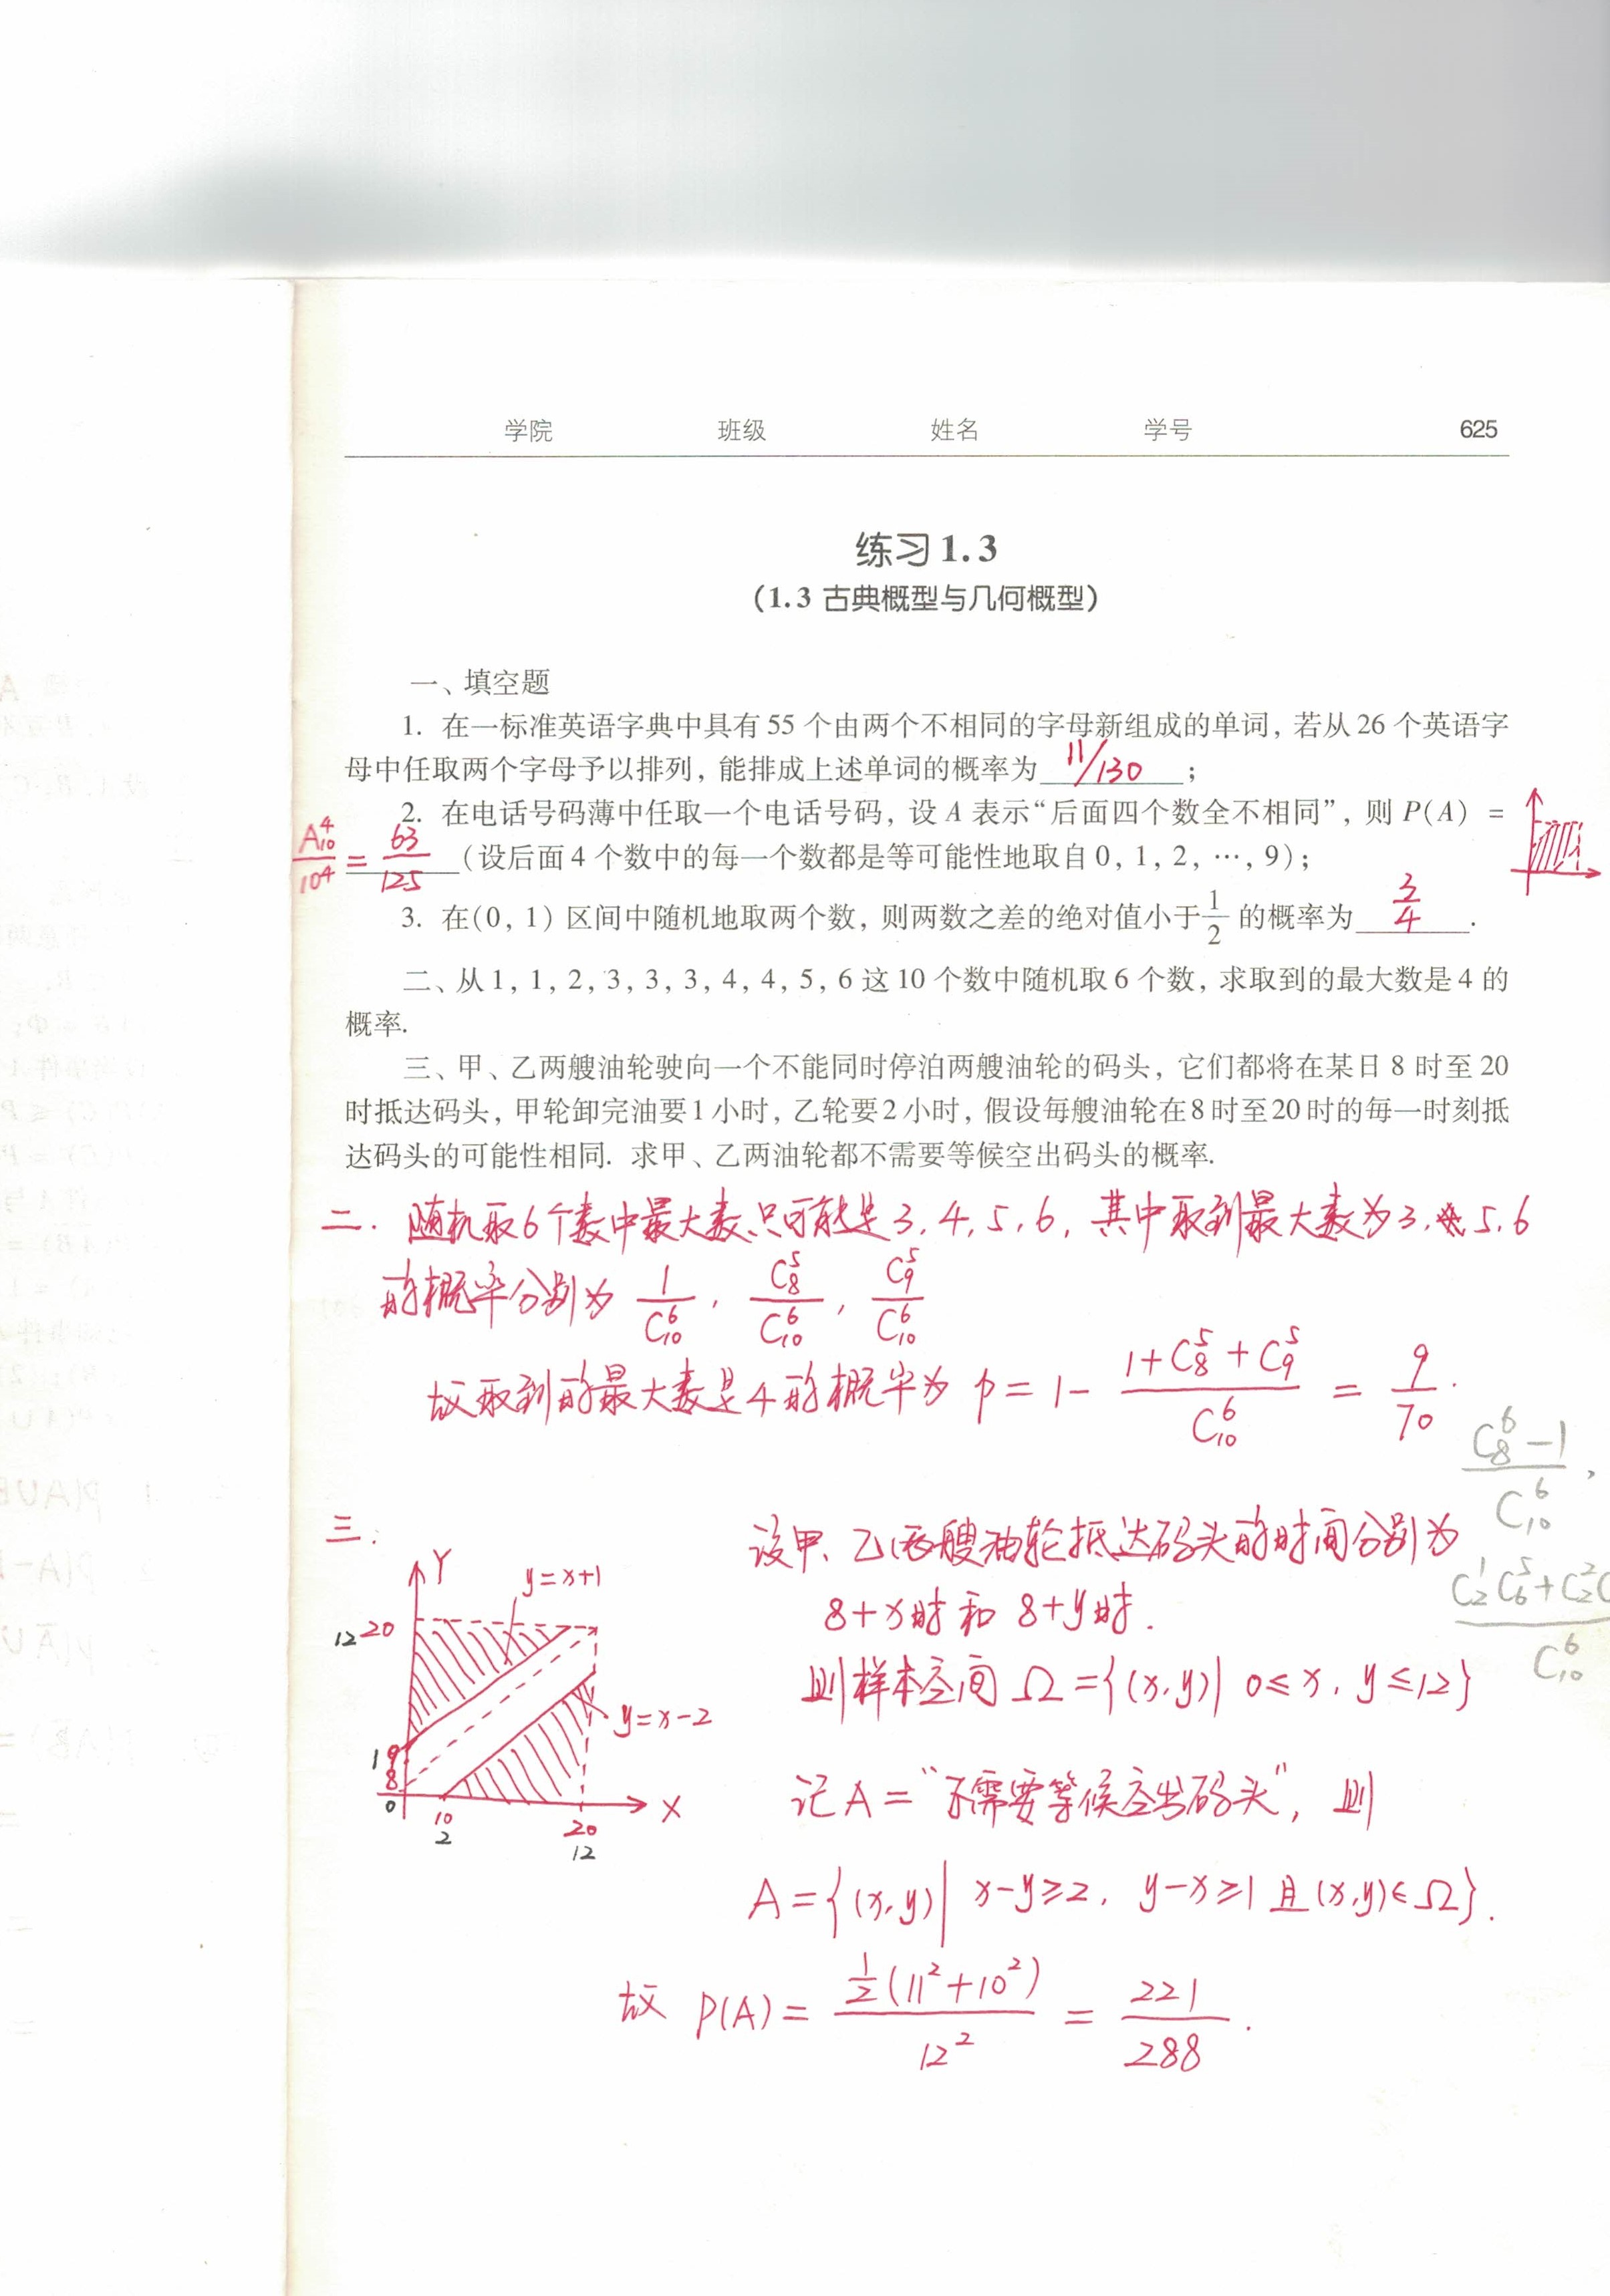 学院 班级 姓名 学号 625
练习1.3
(1.3 古典概型与几何概型)
一、填空题
1. 在一标准英语字典中具有 55 个由两个不相同的字母新组成的单词, 若从 26 个英语字
母中任取两个字母予以排列, 能排成上述单词的概率为 11/130 ;
2. 在电话号码薄中任取一个电话号码, 设 A 表示“后面四个数全不相同”, 则 P(A) =
A₁₀⁴/10⁴ = 63/125 (设后面 4 个数中的每一个数都是等可能性地取自 0, 1, 2, …, 9);
3. 在(0, 1) 区间中随机地取两个数, 则两数之差的绝对值小于 1/2 的概率为 3/4 .
二、从 1, 1, 2, 3, 3, 3, 4, 4, 5, 6 这 10 个数中随机取 6 个数, 求取到的最大数是 4 的
概率.
三、甲、乙两艘油轮驶向一个不能同时停泊两艘油轮的码头, 它们都将在某日 8 时至 20
时抵达码头, 甲轮卸完油要 1 小时, 乙轮要 2 小时, 假设每艘油轮在 8 时至 20 时的每一时刻抵
达码头的可能性相同. 求甲、乙两油轮都不需要等候空出码头的概率.
二. 随机取6个数中最大数只可能是3, 4, 5, 6, 其中取到最大数为3, 5, 6
的概率分别为 1/C₁₀⁶, C₈⁵/C₁₀⁶, C₉⁵/C₁₀⁶
故取到的最大数是4的概率为 p = 1 - (1+C₈⁵+C₉⁵)/C₁₀⁶ = 9/70.
(C₈⁶-1)/C₁₀⁶,
(C₂¹C₆⁵+C₂²C)/C₁₀⁶
三.
Y
y=x+1
12 20
y=x-2
1 9
8
0
X
10 20
2 12
设甲、乙两艘油轮抵达码头的时间分别为
8+x时和 8+y时.
则样本空间 Ω={(x,y)| 0≤x, y≤12}
记 A = “不需要等候空出码头”, 则
A={(x,y)| x-y≥2, y-x≥1 且(x,y)∈Ω}.
故 P(A) = ½(11²+10²)/12² = 221/288.